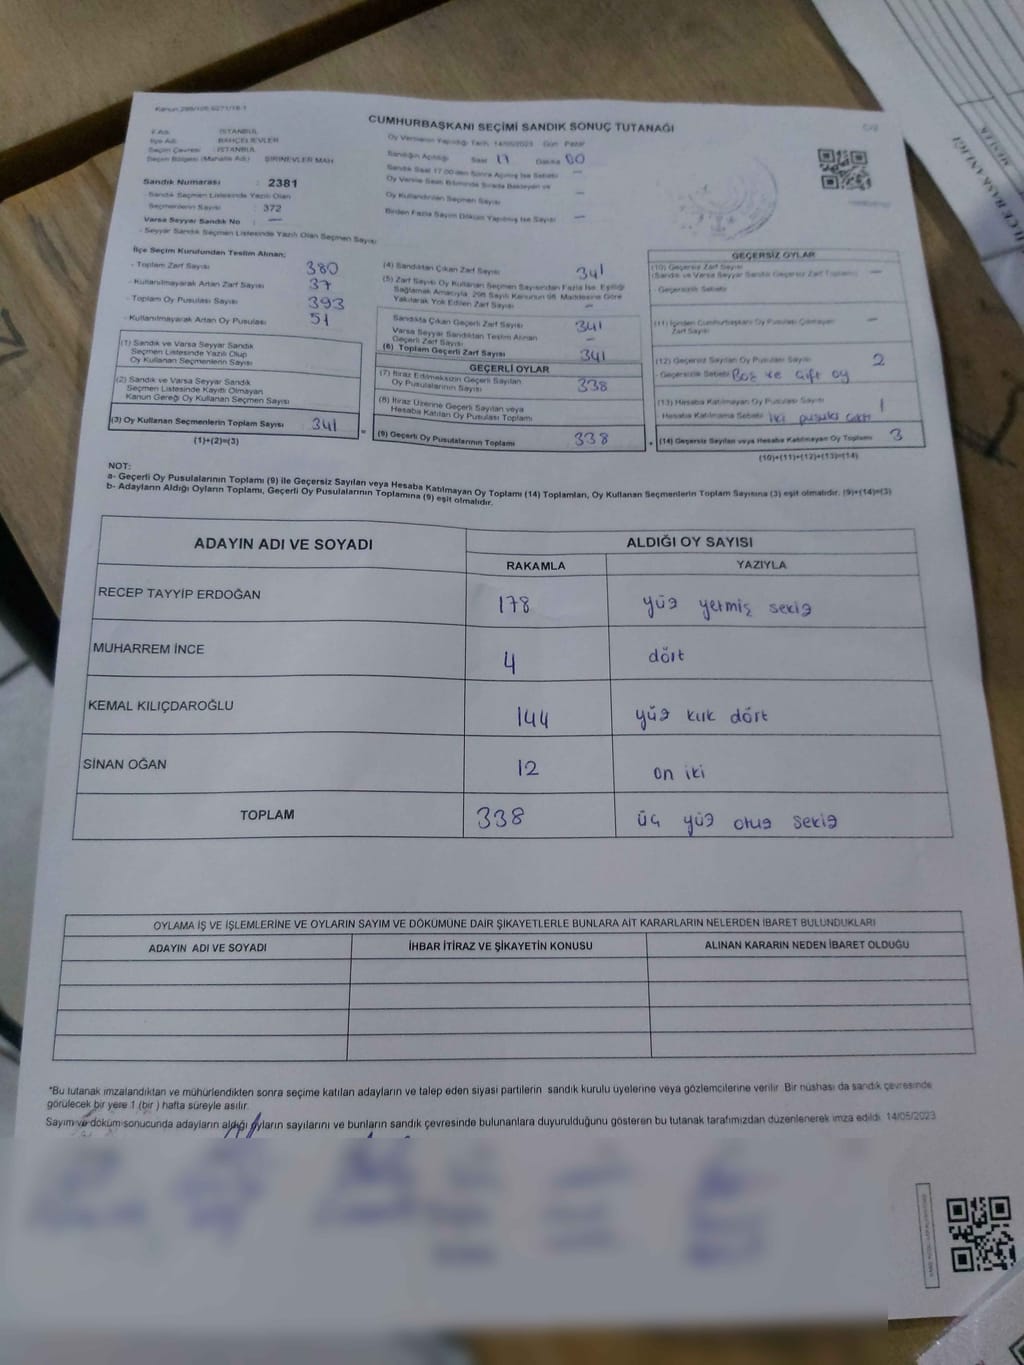 Kanun 298/105 6271/18-1
CUMHURBAŞKANI SEÇİMİ SANDIK SONUÇ TUTANAĞI
İl Adı : İSTANBUL
İlçe Adı : BAHÇELİEVLER
Seçim Çevresi : İSTANBUL
Seçim Bölgesi (Mahalle Adı) : ŞİRİNEVLER MAH
Sandık Numarası : 2381
- Sandık Seçmen Listesinde Yazılı Olan
Seçmenlerin Sayısı : 372
Varsa Seyyar Sandık No : —
- Seyyar Sandık Seçmen Listesinde Yazılı Olan Seçmen Sayısı
Oy Vermenin Yapıldığı Tarih 14/05/2023 Gün Pazar
Sandığın Açıldığı Saat 17 Dakika 00
Sandık Saat 17.00'den Sonra Açılmış İse Sebebi —
Oy Verme Saati Bitiminde Sırada Bekleyen ve
Oy Kullandırılan Seçmen Sayısı —
Birden Fazla Sayım Döküm Yapılmış İse Sayısı —
İlçe Seçim Kurulundan Teslim Alınan;
- Toplam Zarf Sayısı 380
- Kullanılmayarak Artan Zarf Sayısı 37
- Toplam Oy Pusulası Sayısı 393
- Kullanılmayarak Artan Oy Pusulası 51
(1) Sandık ve Varsa Seyyar Sandık
Seçmen Listesinde Yazılı Olup
Oy Kullanan Seçmenlerin Sayısı
(2) Sandık ve Varsa Seyyar Sandık
Seçmen Listesinde Kayıtlı Olmayan
Kanun Gereği Oy Kullanan Seçmen Sayısı
(3) Oy Kullanan Seçmenlerin Toplam Sayısı 341
(1)+(2)=(3)
(4) Sandıktan Çıkan Zarf Sayısı 341
(5) Zarf Sayısı Oy Kullanan Seçmen Sayısından Fazla İse, Eşitliği
Sağlamak Amacıyla, 298 Sayılı Kanunun 98. Maddesine Göre
Yakılarak Yok Edilen Zarf Sayısı —
Sandıkta Çıkan Geçerli Zarf Sayısı 341
Varsa Seyyar Sandıktan Teslim Alınan
Geçerli Zarf Sayısı —
(6) Toplam Geçerli Zarf Sayısı 341
GEÇERLİ OYLAR
(7) İtiraz Edilmeksizin Geçerli Sayılan
Oy Pusulalarının Sayısı 338
(8) İtiraz Üzerine Geçerli Sayılan veya
Hesaba Katılan Oy Pusulası Toplamı
= (9) Geçerli Oy Pusulalarının Toplamı 338
GEÇERSİZ OYLAR
(10) Geçersiz Zarf Sayısı —
(Sandık ve Varsa Seyyar Sandık Geçersiz Zarf Toplamı)
- Geçersizlik Sebebi
(11) İçinden Cumhurbaşkanı Oy Pusulası Çıkmayan
Zarf Sayısı —
(12) Geçersiz Sayılan Oy Pusulası Sayısı 2
- Geçersizlik Sebebi Boş ve Çift oy
(13) Hesaba Katılmayan Oy Pusulası Sayısı 1
- Hesaba Katılmama Sebebi iki pusula çıktı
+ (14) Geçersiz Sayılan veya Hesaba Katılmayan Oy Toplamı 3
(10)+(11)+(12)+(13)=(14)
NOT:
a- Geçerli Oy Pusulalarının Toplamı (9) ile Geçersiz Sayılan veya Hesaba Katılmayan Oy Toplamı (14) Toplamları, Oy Kullanan Seçmenlerin Toplam Sayısına (3) eşit olmalıdır. (9)+(14)=(3)
b- Adayların Aldığı Oyların Toplamı, Geçerli Oy Pusulalarının Toplamına (9) eşit olmalıdır.
ADAYIN ADI VE SOYADI
ALDIĞI OY SAYISI
RAKAMLA YAZIYLA
RECEP TAYYİP ERDOĞAN 178 yüz yetmiş sekiz
MUHARREM İNCE 4 dört
KEMAL KILIÇDAROĞLU 144 yüz kırk dört
SİNAN OĞAN 12 on iki
TOPLAM 338 üç yüz otuz sekiz
OYLAMA İŞ VE İŞLEMLERİNE VE OYLARIN SAYIM VE DÖKÜMÜNE DAİR ŞİKAYETLERLE BUNLARA AİT KARARLARIN NELERDEN İBARET BULUNDUKLARI
ADAYIN ADI VE SOYADI İHBAR İTİRAZ VE ŞİKAYETİN KONUSU ALINAN KARARIN NEDEN İBARET OLDUĞU
*Bu tutanak imzalandıktan ve mühürlendikten sonra seçime katılan adayların ve talep eden siyasi partilerin sandık kurulu üyelerine veya gözlemcilerine verilir. Bir nüshası da sandık çevresinde
görülecek bir yere 1 (bir ) hafta süreyle asılır.
Sayım ve döküm sonucunda adayların aldığı oyların sayılarını ve bunların sandık çevresinde bulunanlara duyurulduğunu gösteren bu tutanak tarafımızdan düzenlenerek imza edildi. 14/05/2023